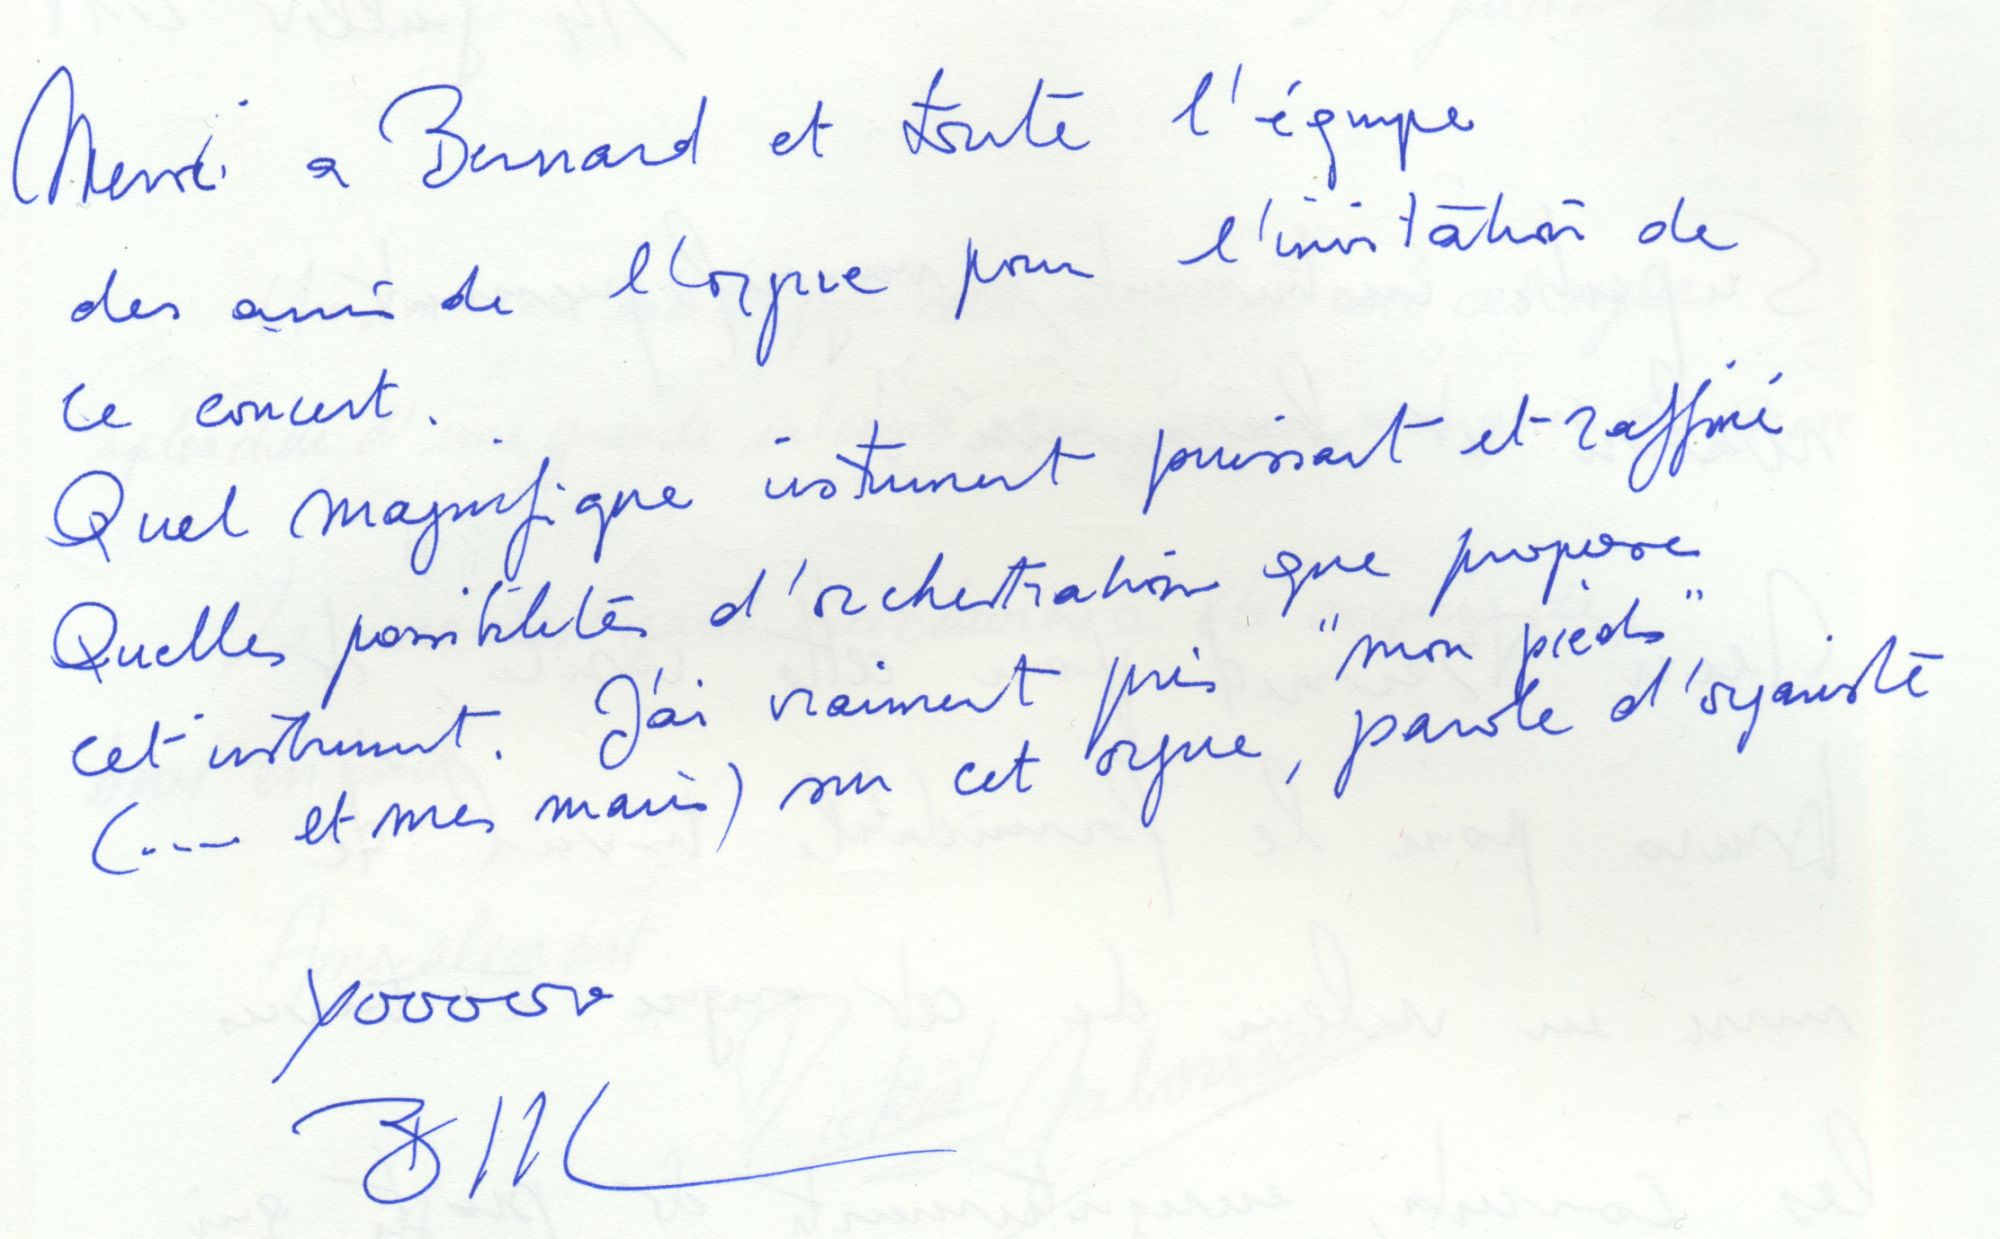 Merci a Bernard et toute l'équipe
des amis de l'orgue pour l'invitation de
ce concert.
Quel magnifique instrument puissant et raffiné
Quelles possibilités d'orchestration que propose
cet instrument. J'ai vraiment pris "mon pieds"
(.... et mes mains) sur cet orgue, parole d'organiste